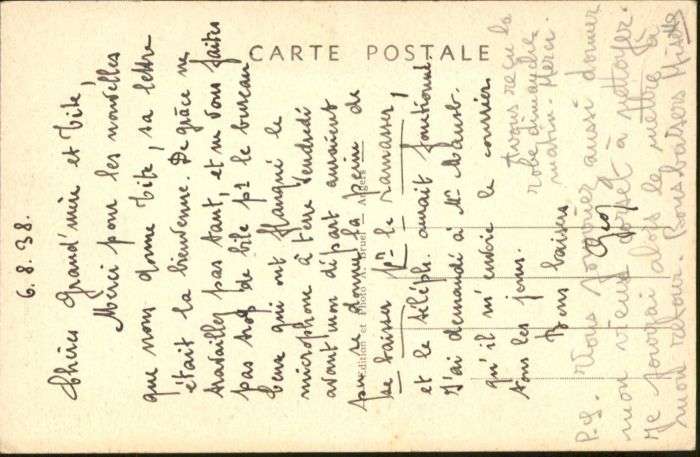 CARTE POSTALE
6.8.38.
Chères Grand'mère et Tite,
Merci pour les nouvelles
que nous donne Tite, sa lettre
était la bienvenue. De grâce ne
travaillez pas tant, et ne vous faites
pas trop de bile pr le bureau
Ceux qui ont flanqué le
microphone à terre Vendredi
avant mon départ auraient
pu se donner la peine de
se baisser pr le ramasser,
et le téléph. aurait fonctionné.
J'ai demandé à Mr
qu'il m'envoie le courrier
tous les jours.
Bons baisers
Edition et Photo A. Bruel — Angers
Avons reçu la
robe dimanche
matin. Merci.
P.S. Vous pourrier aussi donner
mon vieux corset à nettoyer.
Je pourrai alors le mettre à
mon retour. Bons baisers